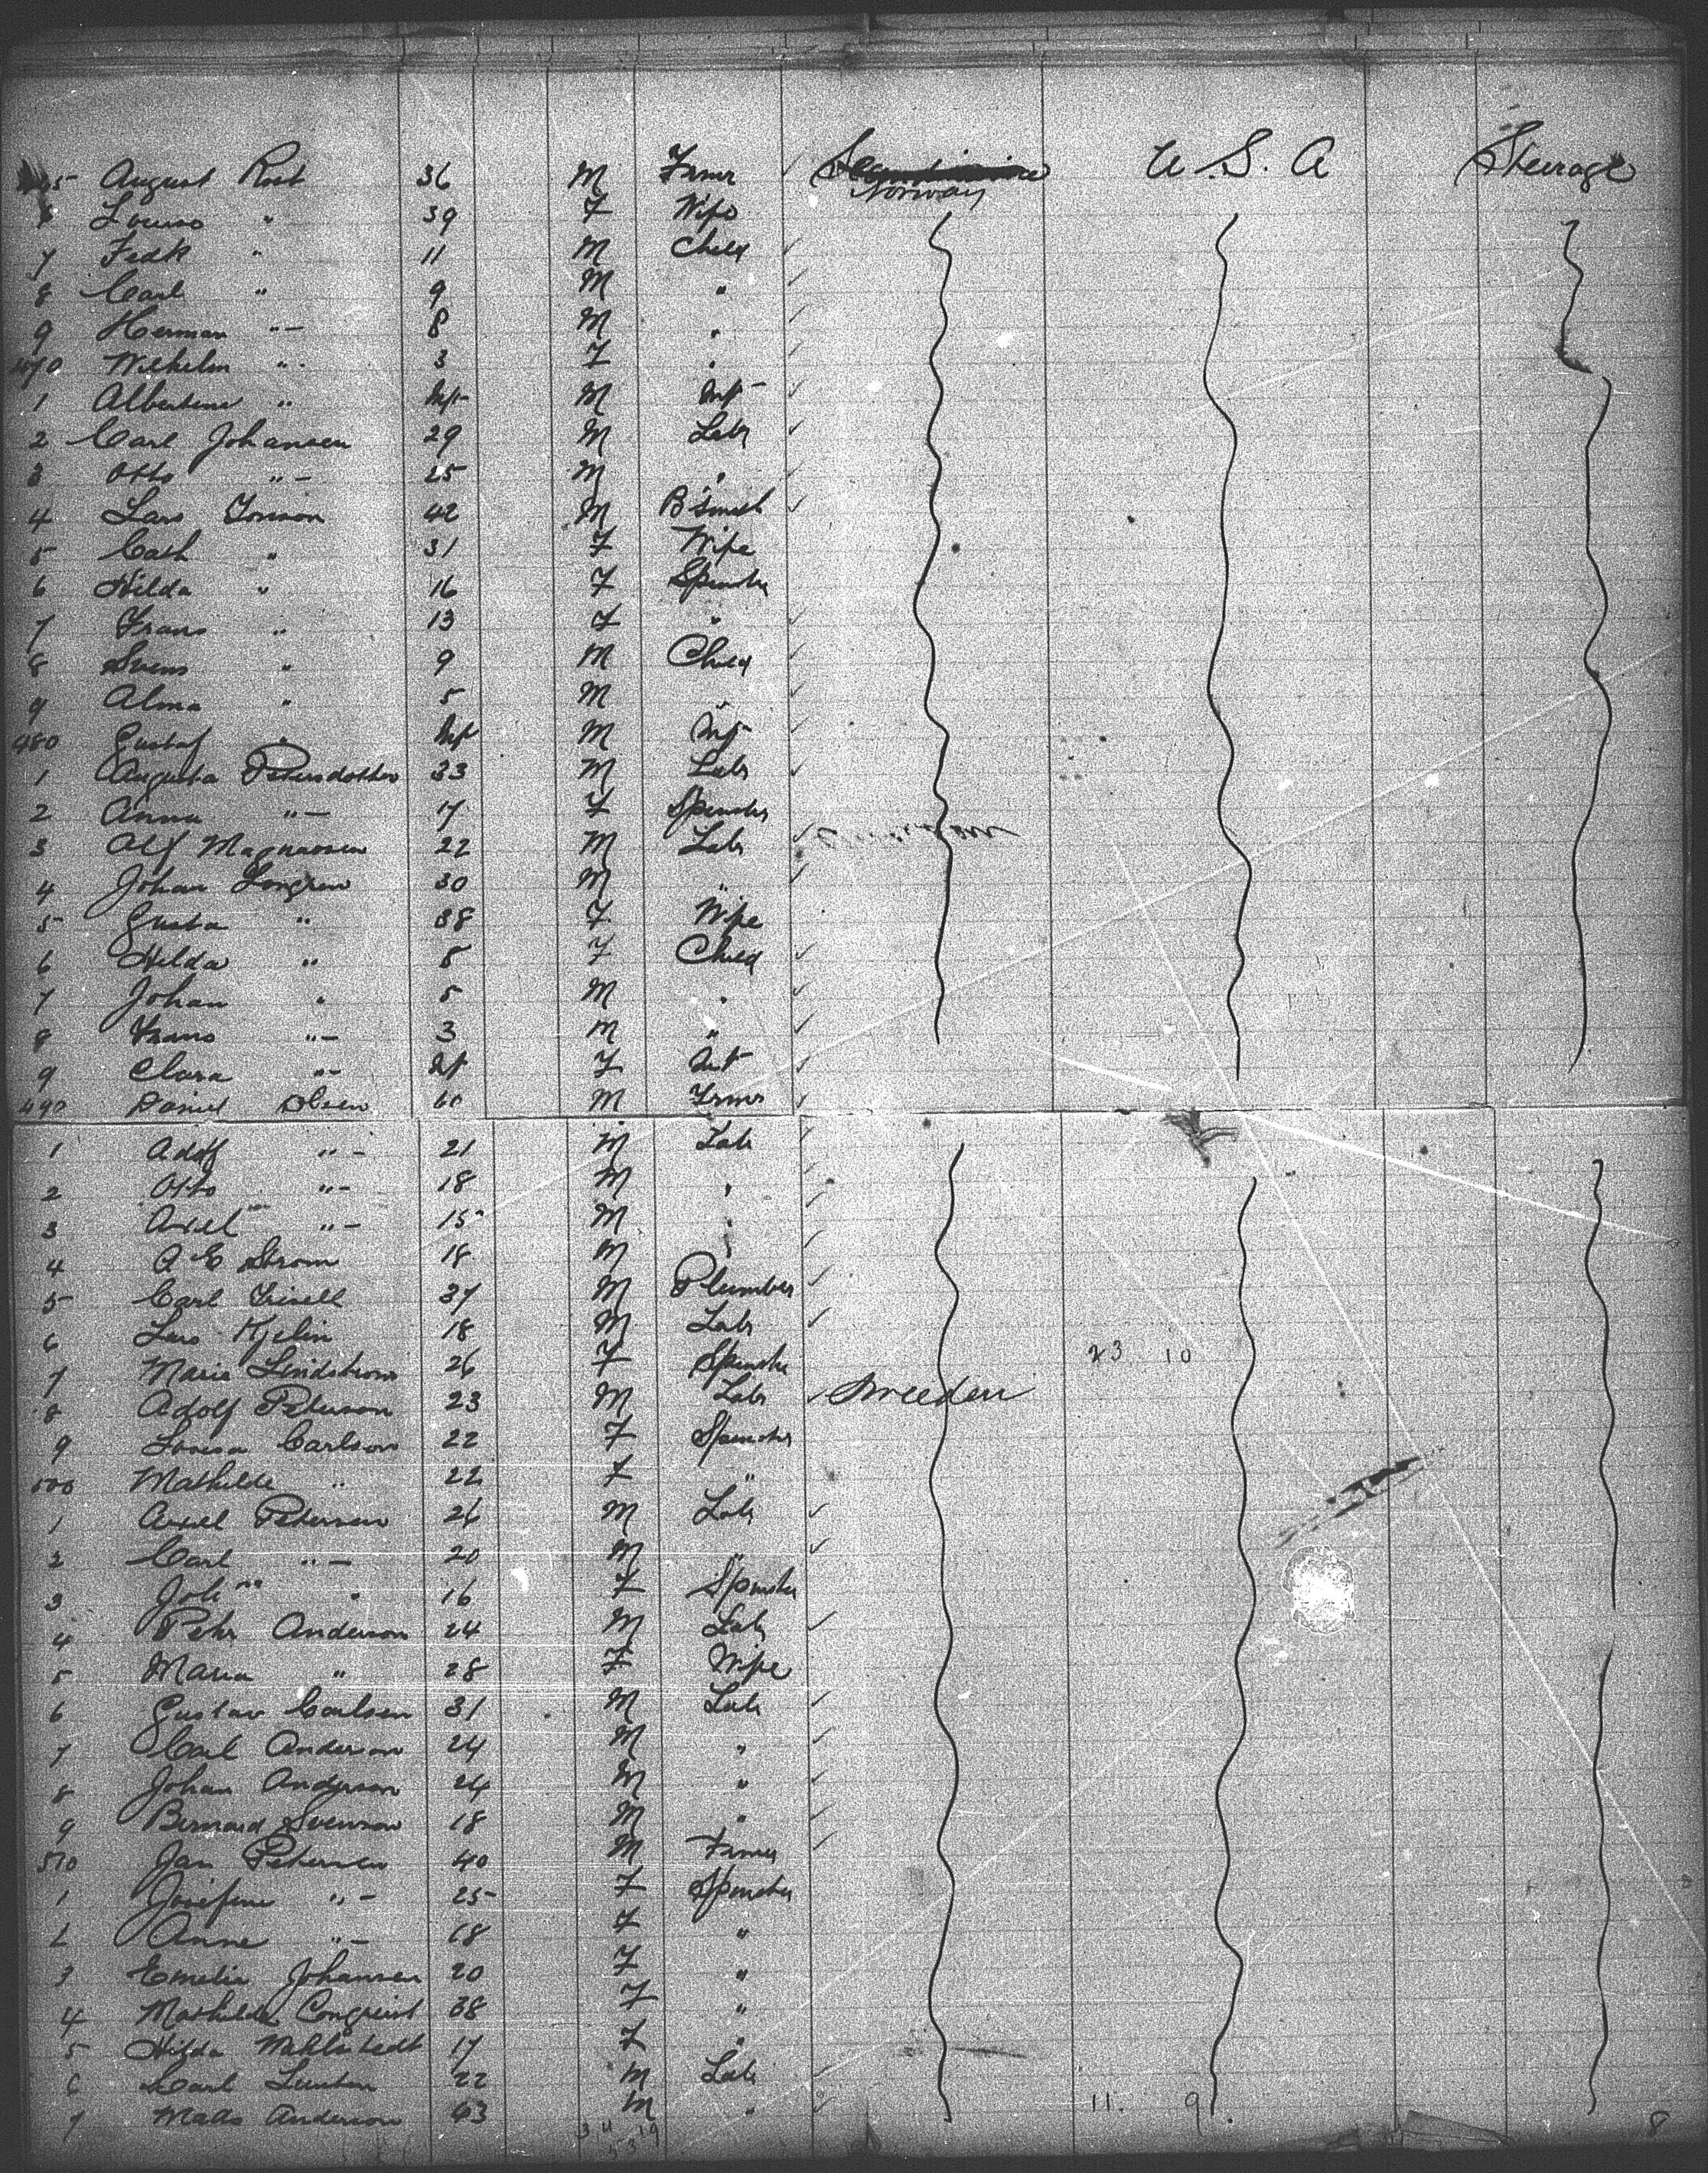 5 August Rost 36 M Frmr Norway U.S.A Steerage
6 Louisa " 39 F Wife
7 Fedk " 11 M Child
8 Carl " 9 M "
9 Herman "- 8 M "
470 Wilhelm " 3 F "
1 Albertine " Inf M Inf
2 Carl Johansen 29 M Labr
3 Otto "- 25 M "
4 Lars 42 M B Smith
5 Cath " 31 F Wife
6 Hilda " 16 F Spinster
7 Frans " 13 F "
8 Svens " 9 M Child
9 Alma " 5 M "
480 Gustaf " Inf M Inf
1 Augusta Petersdotter 33 M Labr
2 Anna "- 17 F Spinster
3 Alf Magnussen 22 M Labr
4 Johan 30 M "
5 Gusta " 38 F Wife
6 Hilda " 8 F Child
7 Johan " 5 M "
8 Frans "- 3 M "
9 Clara "- Inf F Inf
490 Daniel Olsen 60 M Frmr
1 Adolf "- 21 M Labr
2 Otto "- 18 M "
3 Axel "- 15 M "
4 A E Strom 18 M "
5 Carl 37 M Plumber
6 Lars Kjelin 18 M Labr
7 Maria Lindstrom 26 F Spinster 23 10
8 Adolf Peterson 23 M Labr Sweeden
9 Lovisa Carlson 22 F Spinster
500 Mathilde " 22 F "
1 Axel Petersen 26 M Labr
2 Carl "- 20 M "
3 Joh " 16 F Spinster
4 Pehr Anderson 24 M Labr
5 Maria " 28 F Wife
6 Gustav Carlsen 31 M Labr
7 Carl Anderson 24 M "
8 Johan Anderson 24 M "
9 Bernard Svenson 18 M "
510 Jan Petersen 40 M Frmer
1 Josefine "- 25 F Spinster
2 Anne "- 18 F "
3 Emelia Johansen 20 F "
4 Mathilde 38 F "
5 Hilda 17 F "
6 Carl 22 M Labr
7 Matts Anderson 43 M " 11. 9.
8